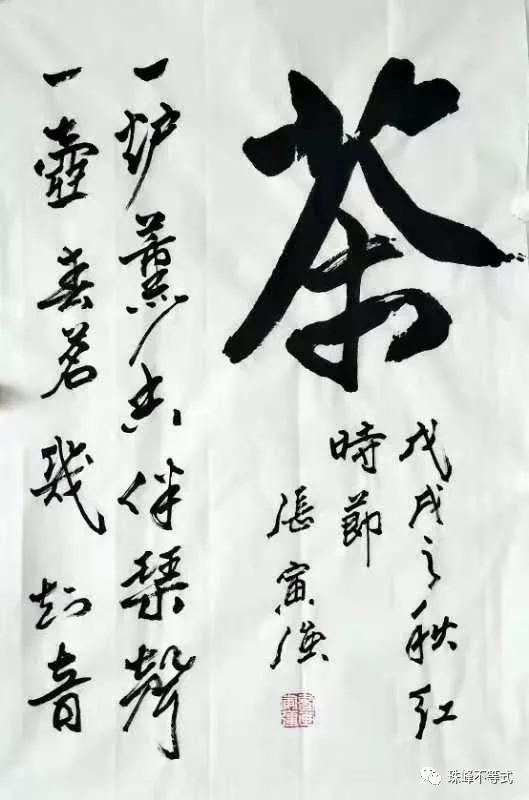 茶
戊戌之秋红
時節
張寅
一炉薰香伴琴聲
一壺春茗幾知音
珠峰不等式